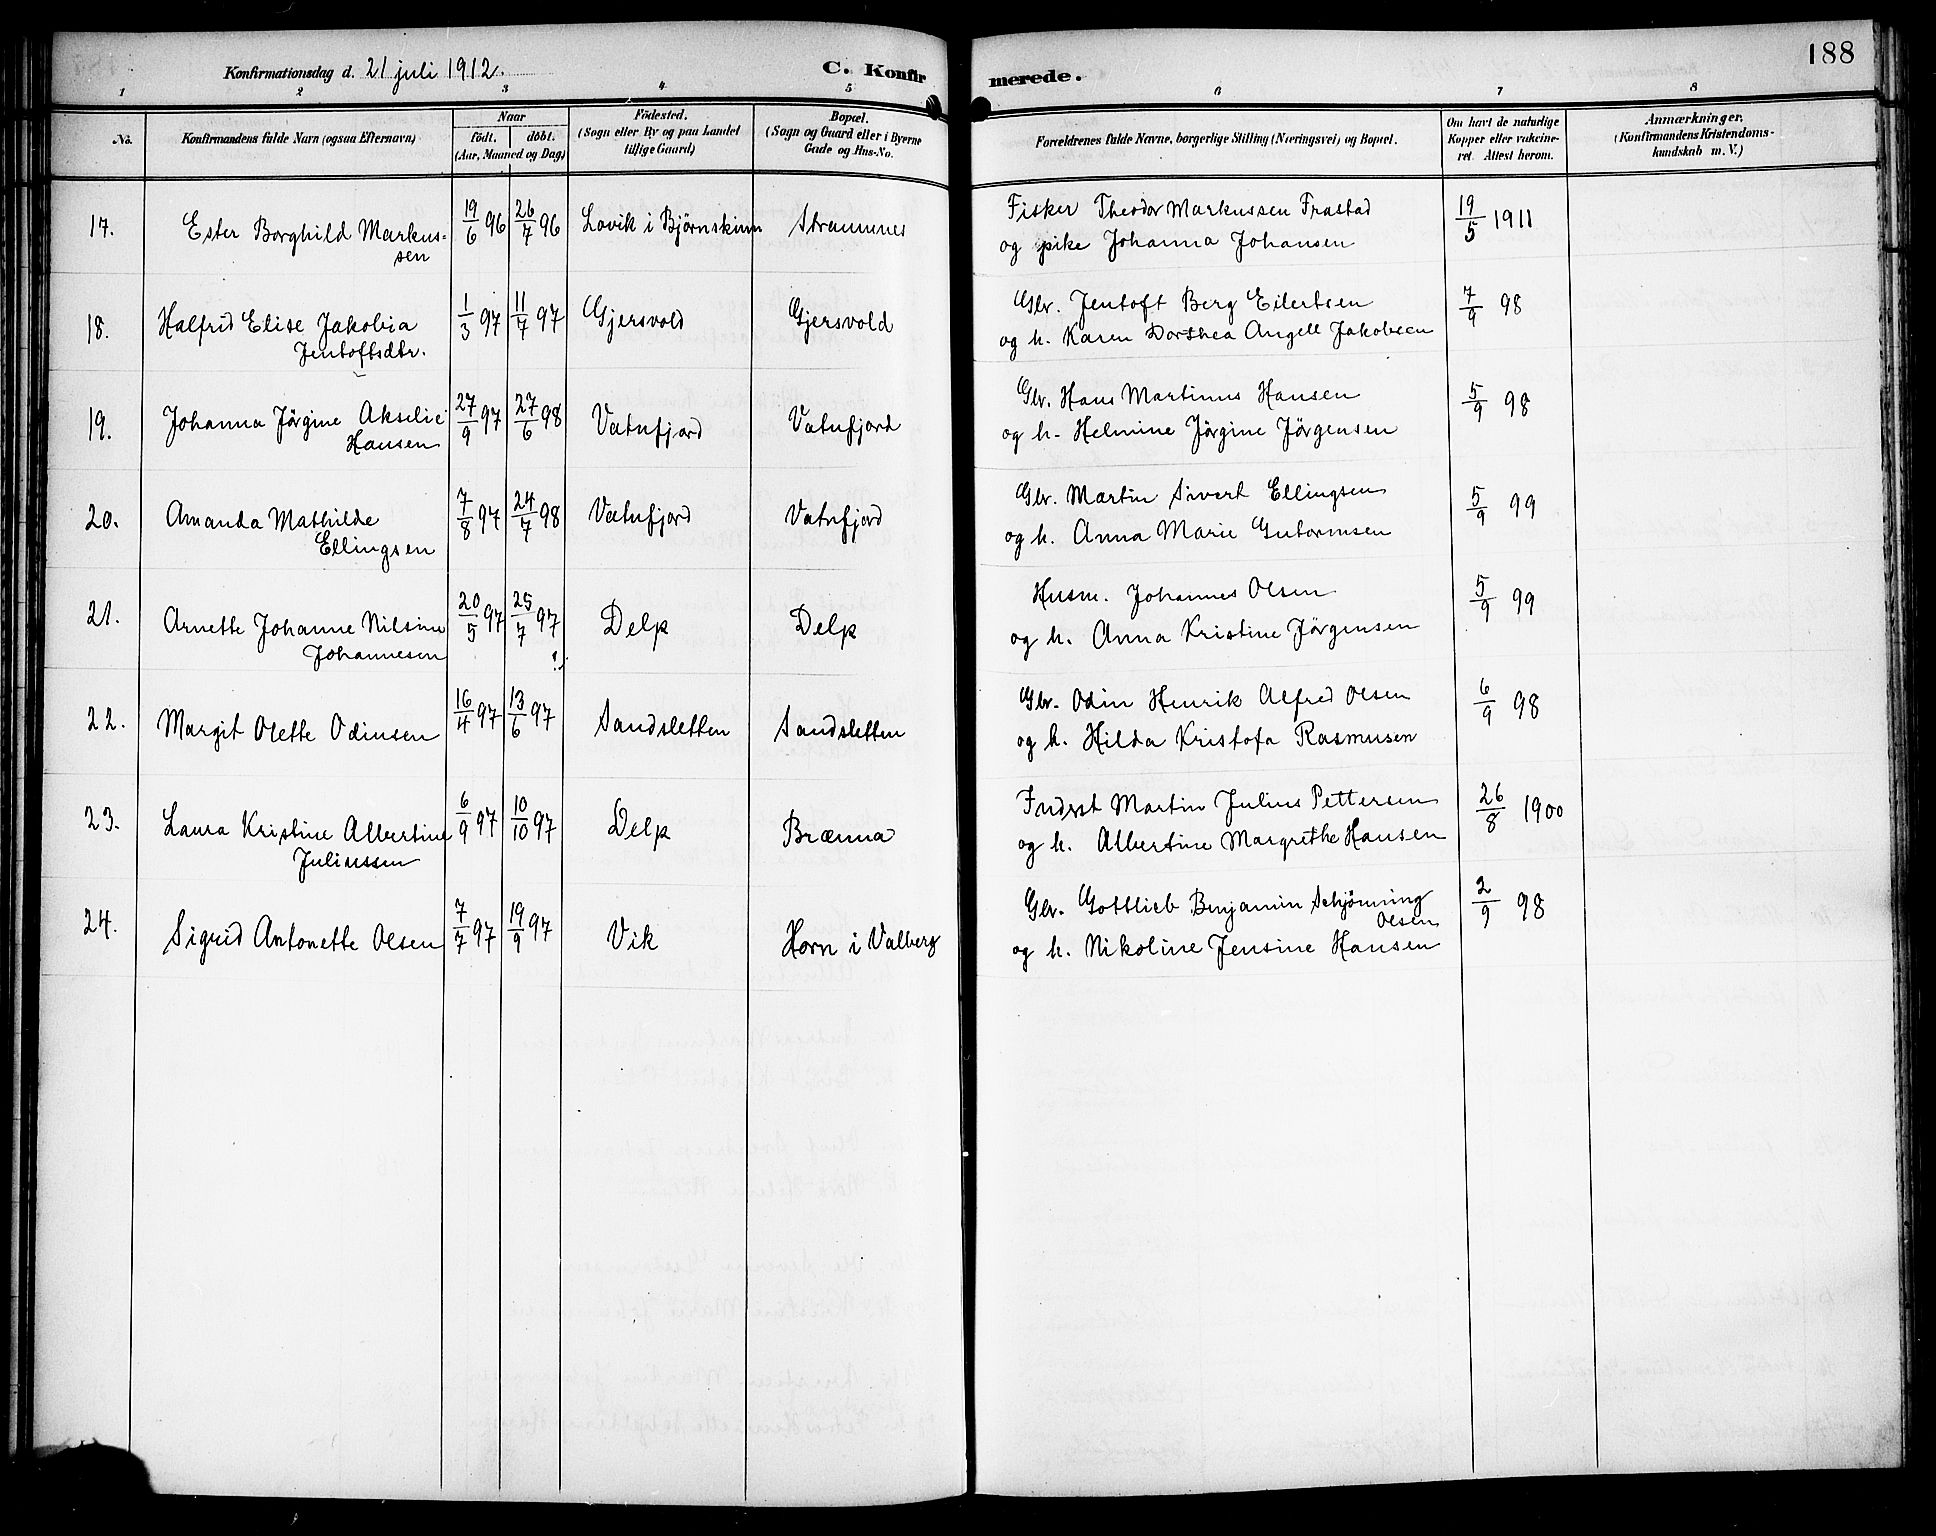 Konfirmationsdag d. 21 juli 1912.
C. Konfirmerede.
188
1 2 3 4 5 6 7 8
No.
Konfirmandens fulde Navn (ogsaa Efternavn)
Naar
födt. döbt.
(Aar, Maaned og Dag)
Födested.
(Sogn eller By og paa Landet
tillige Gaard)
Bopæl.
(Sogn og Gaard eller i Byerne
Gade og Hus-No.
Forældrenes fulde Navne, borgerlige Stilling (Næringsvei) og Bopæl.
Om havt de naturlige
Kopper eller vakcine-
ret. Attest herom.
Anmærkninger.
(Konfirmandens Kristendoms-
kundskab m. V.)
17. Ester Borghild Markus-
sen
19/6 96 26/7 96 Lovik i Björnskinn Straumnes
Fisker Theodor Markussen Frastad
og pike Johanna Johansen
19/5 1911
18. Halfrid Elise Jakobia
Jentoftsdtr.
1/3 97 11/7 97 Gjersvold Gjersvold
Gbr. Jentoft Berg Eilertsen
og h. Karen Dorthea Angell Jakobsen
7/9 98
19. Johanna Jörgine Akselie
Hansen
27/9 97 27/6 98 Vatnfjord Vatnfjord
Gbr. Hans Martinus Hansen
og h. Helmine Jörgine Jörgensen
5/9 98
20. Amanda Mathilde
Ellingsen
7/8 97 24/7 98 Vatnfjord Vatnfjord
Gbr. Martin Sivert Ellingsen
og h. Anna Marie Gutormsen
5/9 99
21. Arnette Johanne Nilsine
Johannesen
20/5 97 25/7 97 Delp Delp
Husm. Johannes Olsen
og h. Anna Kristine Jörgensen
5/9 99
22. Margit Olette Odinsen
16/4 97 13/6 97 Sandsletten Sandsletten
Gbr. Odin Henrik Alfred Olsen
og h. Hilda Kristofa Rasmusen
6/9 98
23. Laura Kristine Albertine
Juliussen
6/9 97 10/10 97 Delp Brænna
Inderst Martin Julius Pettersen
og h. Albertine Margrethe Hansen
26/8 1900
24. Sigrid Antonette Olsen
7/7 97 19/9 97 Vik Horn i Valberg
Gbr. Gottlieb Benjamin Schjönning
Olsen
og h. Nikoline Jensine Hansen
2/9 98